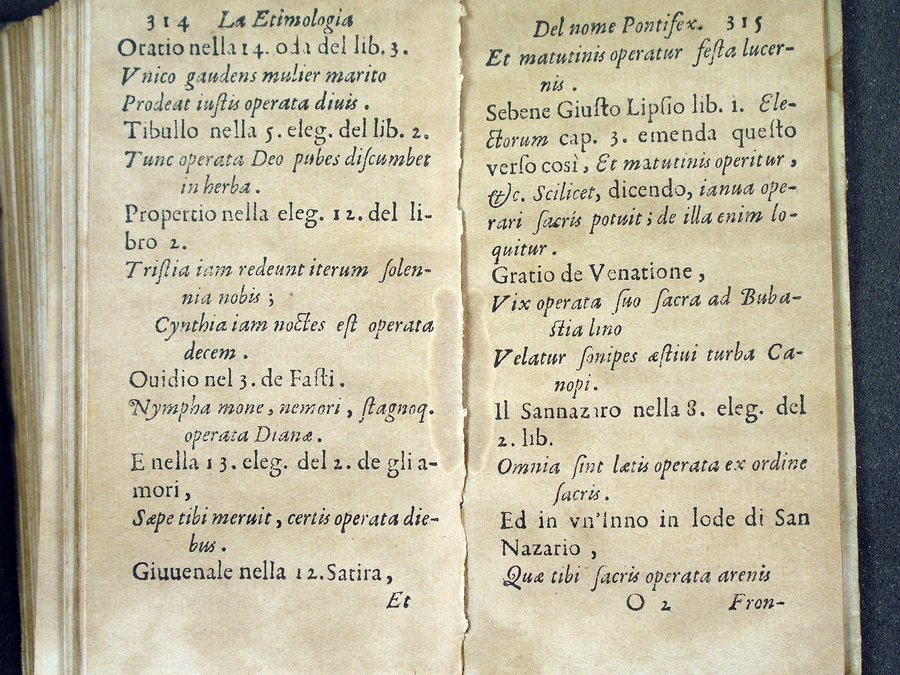 314 La Etimologia
Oratio nella 14. oda del lib. 3.
Vnico gaudens mulier marito
Prodeat iuſtis operata diuis.
Tibullo nella 5. eleg. del lib. 2.
Tunc operata Deo pubes diſcumbet
in herba.
Propertio nella eleg. 12. del li-
bro 2.
Triſtia iam redeunt iterum ſolen-
nia nobis;
Cynthia iam noctes eſt operata
decem.
Ouidio nel 3. de Faſti.
Nympha mone, nemori, ſtagnoq.
operata Dianæ.
E nella 13. eleg. del 2. de gli a-
mori,
Sæpe tibi meruit, certis operata die-
bus.
Giuuenale nella 12. Satira,
Et
Del nome Pontifex. 315
Et matutinis operatur feſta lucer-
nis.
Sebene Giuſto Lipſio lib. 1. Ele-
ctorum cap. 3. emenda queſto
verſo così, Et matutinis operitur,
&c. Scilicet, dicendo, ianua ope-
rari ſacris potuit; de illa enim lo-
quitur.
Gratio de Venatione,
Vix operata ſuo ſacra ad Buba-
ſtia lino
Velatur ſonipes æſtiui turba Ca-
nopi.
Il Sannazaro nella 8. eleg. del
2. lib.
Omnia ſint lætis operata ex ordine
ſacris.
Ed in vn'Inno in lode di San
Nazario,
Quæ tibi ſacris operata arenis
O 2 Fron-